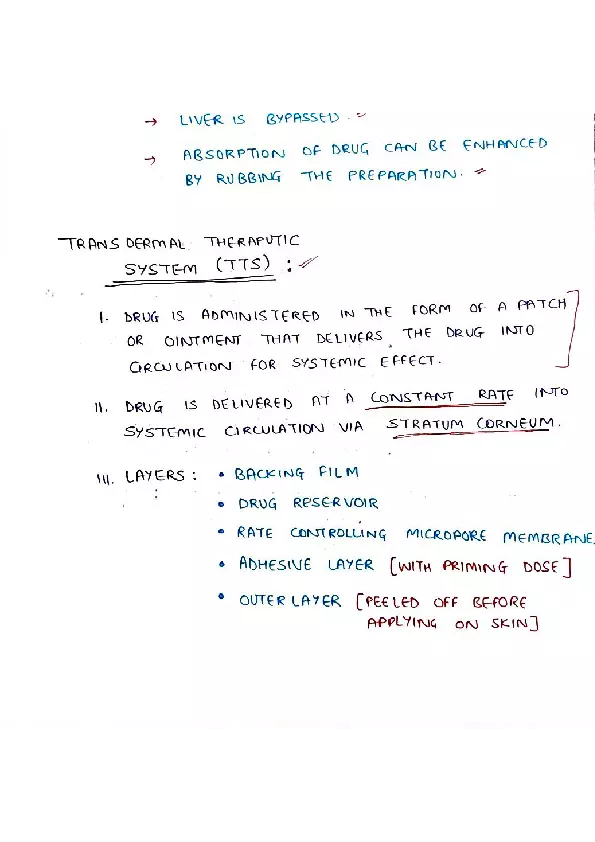 → LIVER IS BYPASSED.
→ ABSORPTION OF DRUG CAN BE ENHANCED
BY RUBBING THE PREPARATION.
TRANSDERMAL THERAPUTIC
SYSTEM (TTS) :
I. DRUG IS ADMINISTERED IN THE FORM OF A PATCH
OR OINTMENT THAT DELIVERS THE DRUG INTO
CIRCULATION FOR SYSTEMIC EFFECT.
II. DRUG IS DELIVERED AT A CONSTANT RATE INTO
SYSTEMIC CIRCULATION VIA STRATUM CORNEUM.
III. LAYERS : • BACKING FILM
• DRUG RESERVOIR
• RATE CONTROLLING MICROPORE MEMBRANE.
• ADHESIVE LAYER [WITH PRIMING DOSE]
• OUTER LAYER [PEELED OFF BEFORE
APPLYING ON SKIN]